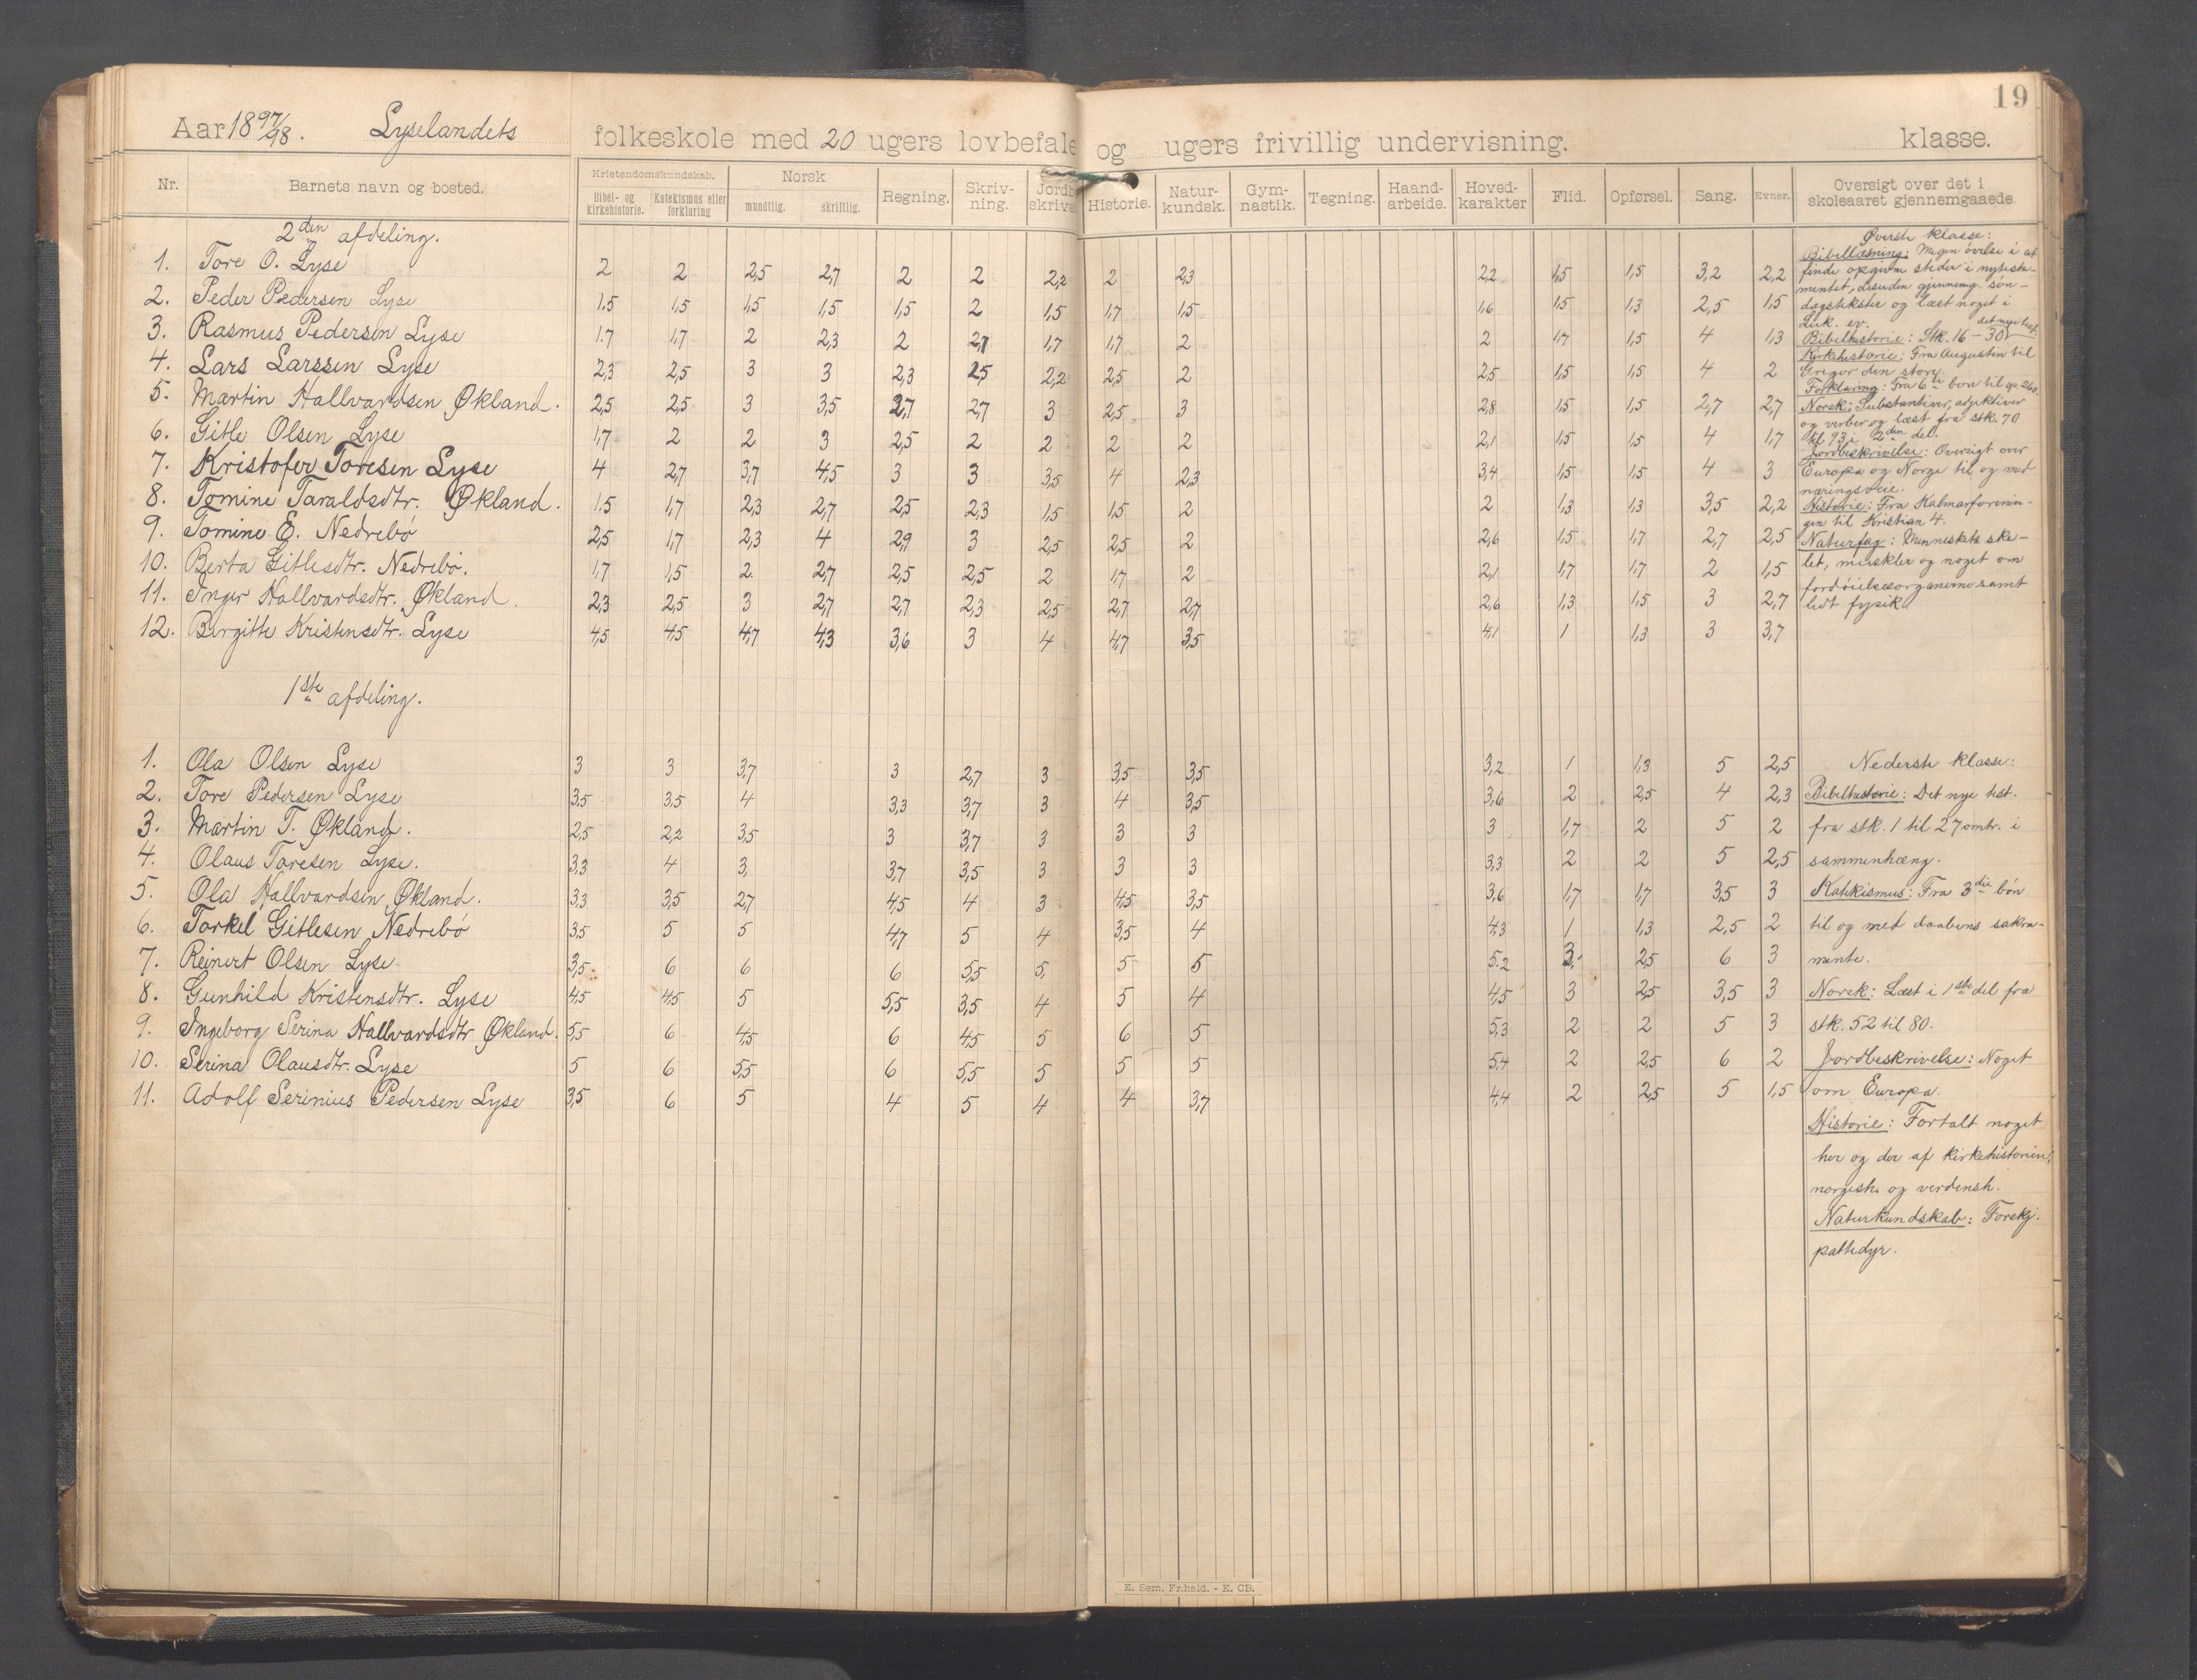 19
Aar 1897/98. Lyselandets folkeskole med 20 ugers lovbefale og ugers frivillig undervisning. klasse.
Nr. Barnets navn og bosted. Kristendomskundskab. Bibel- og kirkehistorie. Katekismus eller forklaring Norsk mundtlig. skriftlig. Regning. Skriv-ning. Jordb skrive Historie. Natur-kundsk. Gym-nastik. Tegning. Haand-arbeide. Hoved-karakter Flid. Opførsel. Sang. Evner. Oversigt over det i skoleaaret gjennemgaaede
2den afdeling.
1. Tore O. Lyse 2 2 2,5 2,7 2 2 2,2 2 2,3 2,2 1,5 1,5 3,2 2,2
2. Peder Pedersen Lyse 1.5 1,5 1,5 1,5 1,5 2 1,5 1,7 1,5 1,6 1,5 1,3 2,5 1,5
3. Rasmus Pedersen Lyse 1.7 1,7 2 2,3 2 2,7 1,7 1,7 2 2 1,7 1,5 4 1,3
4. Lars Larssen Lyse 2,3 2,5 3 3 2,3 2,5 2,2 2,5 2 2,5 1,5 1,5 4 2
5. Martin Hallvardsen Økland. 2,5 2,5 3 3,5 2,7 2,7 3 2,5 3 2,8 1,5 1,5 2,7 2,7
6. Gitle Olsen Lyse 1,7 2 2 3 2,5 2 2 2 2 2,1 1,5 1,5 4 1,7
7. Kristofer Toresen Lyse 4 2,7 3,7 4,5 3 3 3,5 4 2,3 3,4 1,5 1,5 4 3
8. Tomine Taraldsdtr. Økland. 1.5 1,7 2,3 2,7 2,5 2,3 1,5 1,5 2 2 1,3 1,3 3,5 2,2
9. Tomine E. Nedrebö 2,5 1,7 2,3 4 2,9 3 2,5 2,5 2 2,6 1,5 1,7 2,7 2,5
10. Berta Gitlesdtr. Nedrebö. 1,7 1,5 2 2,7 2,5 2,5 2 1,7 2 2,1 1,7 1,7 2 1,5
11. Inger Hallvardsdtr. Økland. 2,3 2,5 3 2,7 2,7 2,3 2,5 2,7 2,7 2,6 1,3 1,5 3 2,7
12. Birgitte Kristensdtr. Lyse 4,5 4,5 4,7 4,3 3,6 3 4 4,7 3,5 4,1 1 1,3 3 3,7
Øverste klasse:
Bibellæsning: Megen övelse i at
finde opgivne steder i nytesta-
mentet, desuden gjennemg. sön-
dagstekster og læst noget i
Luk. ev.
Bibelhistorie: Stk. 16-30 det nye test.
Kirkehistorie: Fra Augustin til
Gregor den store.
Forklaring: Fra 6te bøn til sp. 260.
Norsk: Substantiver, adjektiver
og verber og læst fra stk. 70
til 93 i 2den del.
Jordbeskrivelse: Oversigt over
Europa og Norge til og med
næringsveie.
Historie: Fra Kalmarforenin-
gen til Kristian 4.
Naturfag: Menneskets ske-
let, muskler og noget om
fordöielsesorganerne samt
lidt fysik.
1ste afdeling.
1. Ola Olsen Lyse 3 3 3,7 3 2,7 3 3,5 3,5 3,2 1 1,3 5 2,5
2. Tore Pedersen Lyse 3,5 3,5 4 3,3 3,7 3 4 3,5 3,6 2 2,5 4 2,3
3. Martin T. Økland. 2,5 2,2 3,5 3 3,7 3 3 3 3 1,7 2 5 2
4. Olaus Toresen Lyse. 3,3 4 3, 3,7 3,5 3 3 3 3,3 2 2 5 2,5
5. Ola Hallvardsen Økland. 3,3 3,5 2,7 4,5 4 3 4,5 3,5 3,6 1,7 1,7 3,5 3
6. Torkel Gitlesen Nedrebö 3,5 5 5 4,7 5 4 3,5 4 4,3 1 1,3 2,5 2
7. Reinert Olsen Lyse 3,5 6 6 6 5,5 5, 5 5 5.2 3, 2,5 6 3
8. Gunhild Kristensdtr. Lyse 4,5 4,5 5 5,5 3,5 4 5 4 4,5 3 2,5 3,5 3
9. Ingeborg Serina Hallvardsdtr Økland. 5,5 6 4,5 6 4,5 5 6 5 5,3 2 2 5 3
10. Serina Olausdtr. Lyse 5 6 5,5 6 5,5 5 5 5 5,4 2 2,5 6 2
11. Adolf Serinius Pedersen Lyse 3,5 6 5 4 5 4 4 3,7 4,4 2 2,5 5 1,5
Nederste klasse:
Bibelhistorie: Det nye test.
fra stk. 1 til 27 omtr. i
sammenhæng.
Katekismus: Fra 3die bön
til og med daabens sakra-
mente.
Norsk: Læst i 1ste del fra
stk. 52 til 80.
Jordbeskrivelse: Noget
om Europa.
Historie: Fortalt noget
her og der af kirkehistorien,
norgesh. og verdensh.
Naturkundskab: Forskj.
pattedyr.
E. Sem, Fr.hald. - E. CB.